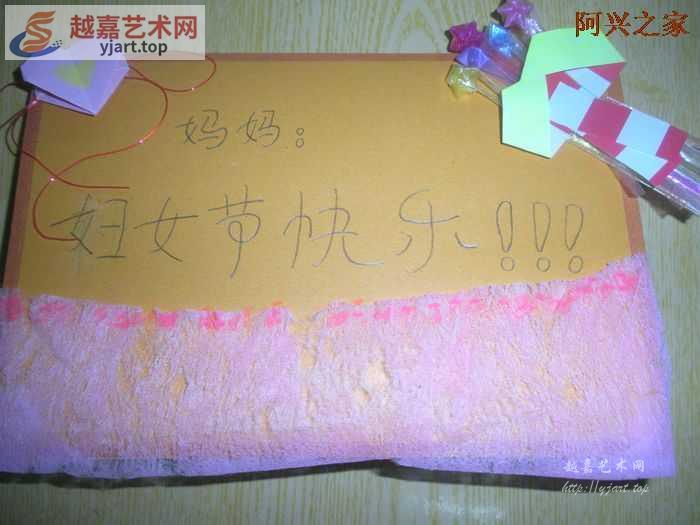 越嘉艺术网
yjart.top
阿兴之家
妈妈：
妇女节快乐!!!
越嘉艺术网
http://yjart.top